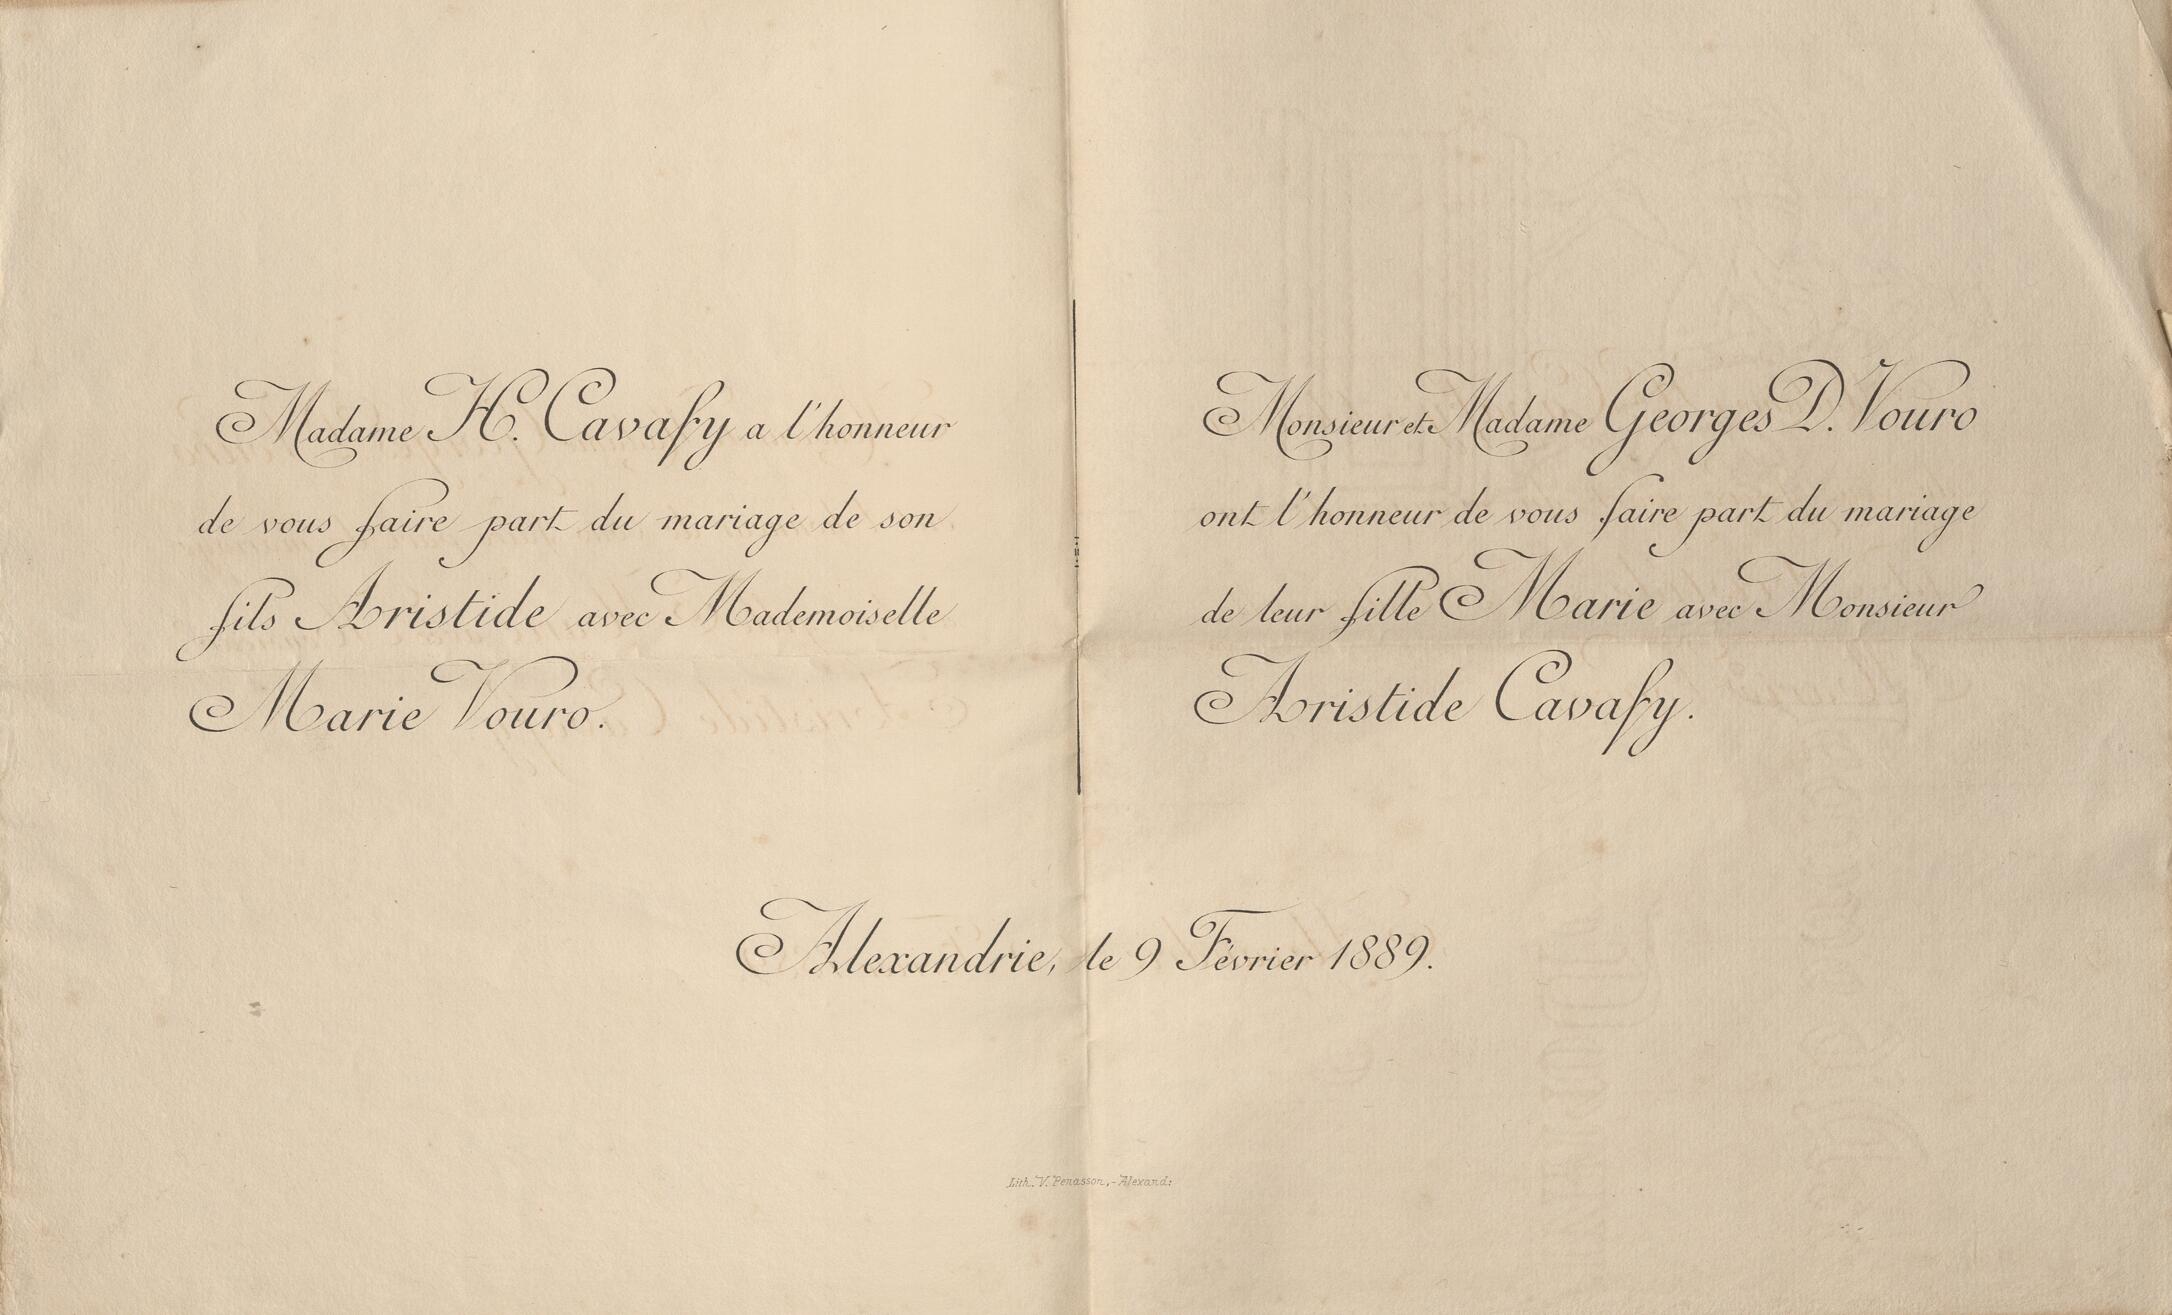 Madame H. Cavafy a l'honneur
de vous faire part du mariage de son
fils Aristide avec Mademoiselle
Marie Vouro.
Monsieur et Madame Georges D. Vouro
ont l'honneur de vous faire part du mariage
de leur fille Marie avec Monsieur
Aristide Cavafy.
Alexandrie, le 9 Février 1889.
Lith. V. Penasson,-Alexand: